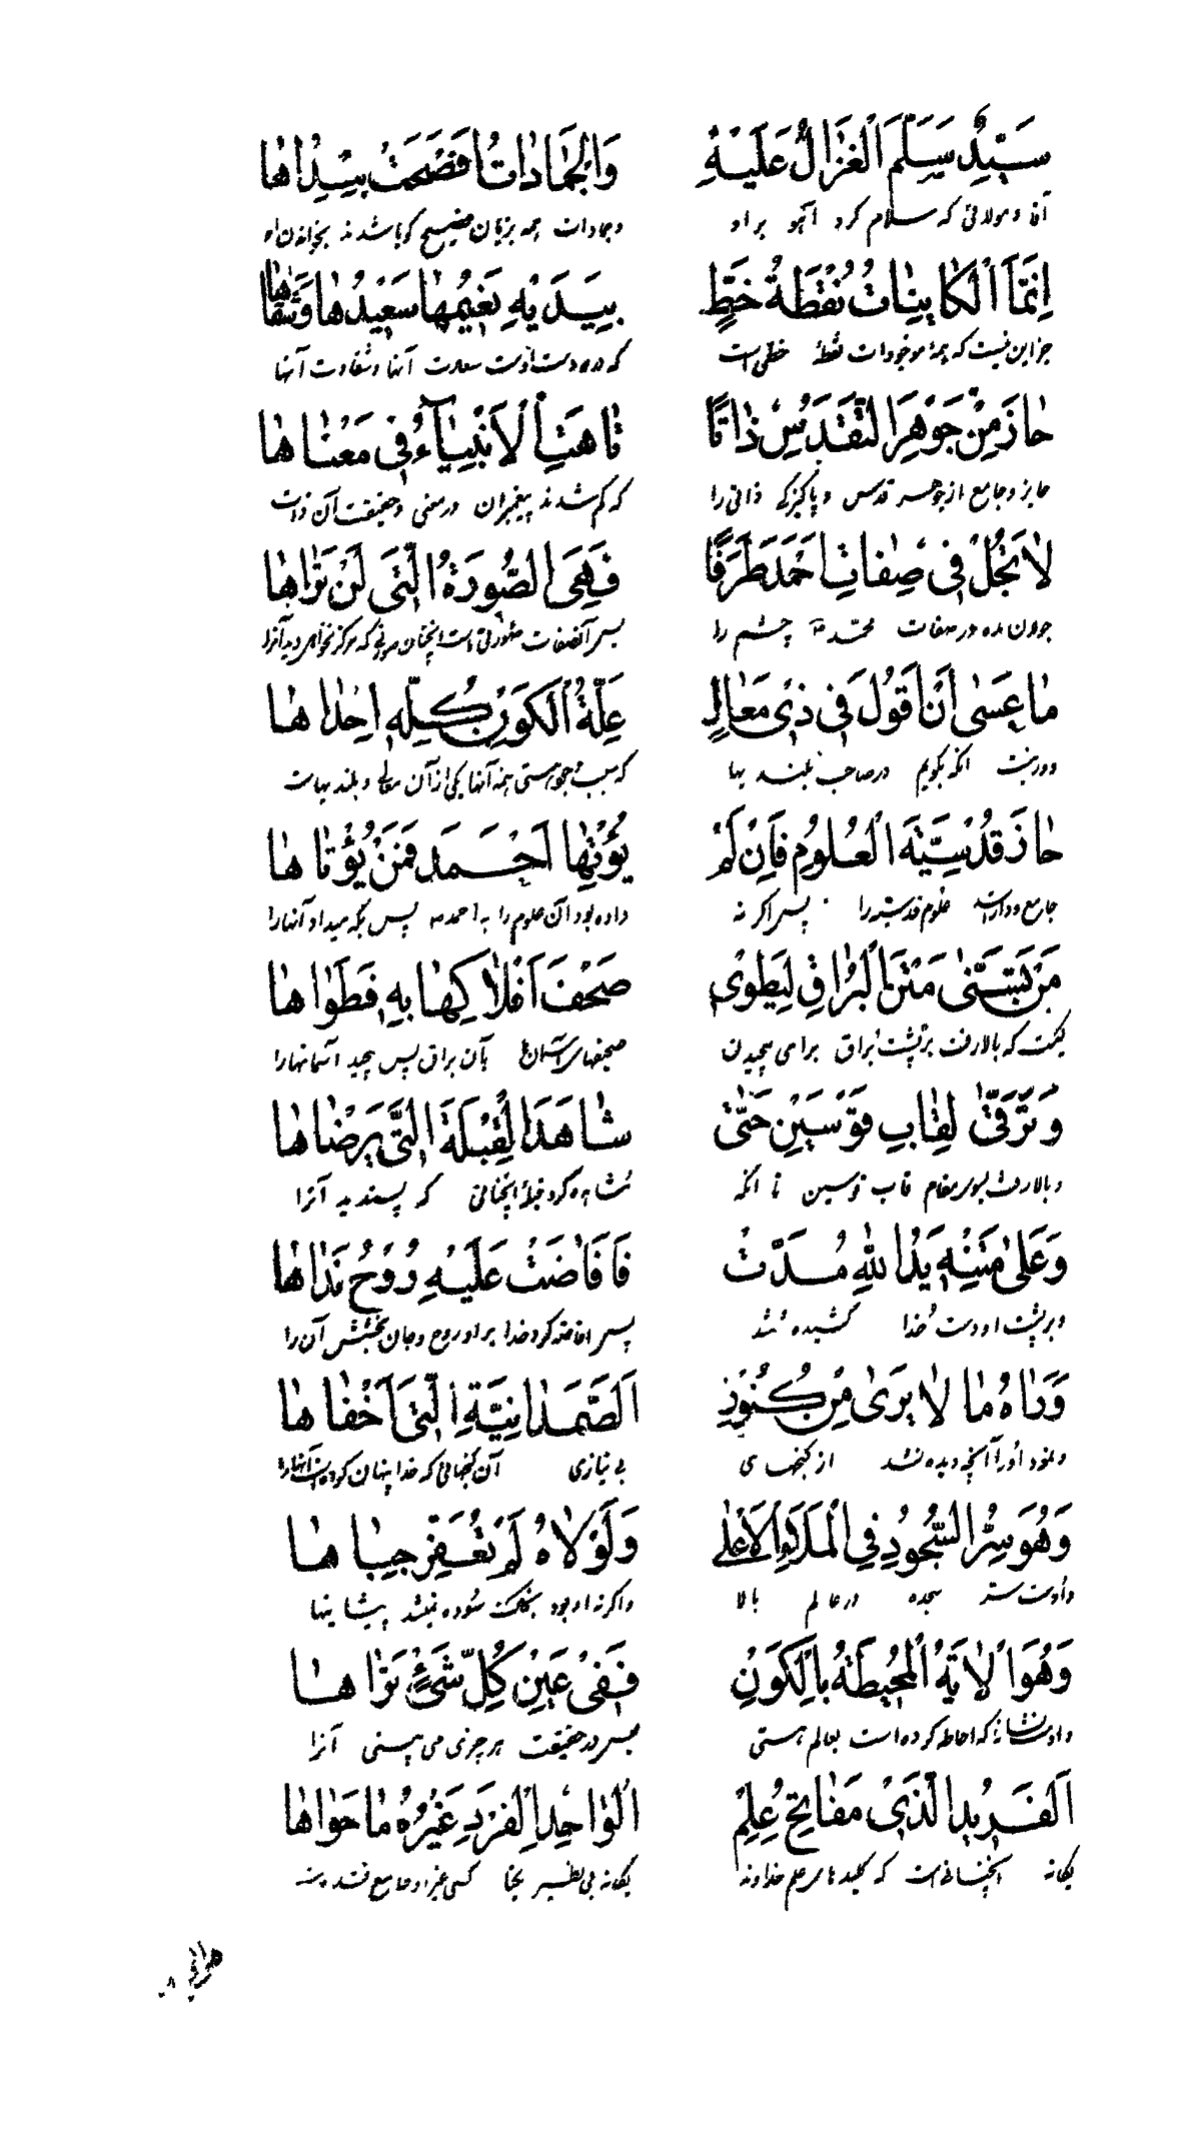 سَيِّدٌ سَلَّمَ الْغَزَالُ عَلَيْهِ وَالْجَمَادَاتُ أَفْصَحَتْ بِنِدَاهَا
آقا و مولائی که سلام کرد آهو بر او و جمادات همه بزبان فصیح گویا شدند بخواندن او
إِنَّمَا الْكَائِنَاتُ نُقْطَةُ خَطٍّ بِيَدَيْهِ نَعِيمُهَا سَعِيدُهَا وَشَقَاهَا
جز این نیست که همهٔ موجودات نقطهٔ خطی است که در دو دست اوست سعادت آنها و شقاوت آنها
حَازَ مِنْ جَوْهَرِ التَّقَدُّسِ ذَاتًا تَاهَتِ الْأَنْبِيَاءُ فِي مَعْنَاهَا
حایز و جامع از جوهر قدس و پاکیزگی ذاتی را که گم شدند پیغمبران در معنی و حقیقت آن ذات
لَا تُجِلْ فِي صِفَاتِ أَحْمَدَ طَرَفًا فَهِيَ الصُّورَةُ الَّتِي لَنْ تَرَاهَا
جولان مده در صفات محمد ص چشم را پس آنصفات صورتی است آنچنان صورتی که هرگز نخواهی دید آنرا
مَا عَسَى أَنْ أَقُولَ فِي ذِي مَعَالٍ عِلَّةُ الْكَوْنِ كُلِّهِ إِحْدَاهَا
آنکه بگویم در صاحب بلندیها که سبب وجود هستی همه آنها یکی از آن معالی و بلندیهاست
حَازَ قُدْسِيَّةَ الْعُلُومِ فَإِنْ لَمْ يُؤْتَهَا أَحْمَدٌ فَمَنْ يُؤْتَاهَا
جامع و داراست علوم قدسیه را پس اگر نه داده بود آن علوم را به احمد ص پس بکه میداد آنها را
مَنْ تَسَنَّى مَتْنَ الْبُرَاقِ لِيَطْوِي صُحُفَ أَفْلَاكِهَا بِهِ فَطَوَاهَا
کیست که بالا رفت بر پشت براق برای پیچیدن صحیفهای آسمان بآن براق پس پیچید آسمانها را
وَتَرَقَّى لِقَابِ قَوْسَيْنِ حَتَّى شَاهَدَ الْقِبْلَةَ الَّتِي يَرْضَاهَا
و بالا رفت بسوی مقام قاب قوسین تا آنکه مشاهده کرد قبلهٔ آنچنانی که پسندید آنرا
وَعَلَى مَتْنِهِ يَدُ اللهِ مُدَّتْ فَأَفَاضَتْ عَلَيْهِ رُوحُ نَدَاهَا
و بر پشت او دست خدا کشیده شد پس افاضه کرد خدا بر او روح و جان بخشش آن را
وَرَاهُ مَا لَا يَرَى مِنْ كُنُوزِ الصَّمَدَانِيَّةِ الَّتِي أَخْفَاهَا
و نمود او را آنچه دیده نشد از گنجهای بی نیازی آن گنجهائی که خدا پنهان کرده است آنها را
وَهُوَ سِرُّ السُّجُودِ فِي الْمَلَأِ الْأَعْلَى وَلَوْلَاهُ لَمْ تُعَفَّرْ جِبَاهَا
و اوست سر سجده در عالم بالا و اگر نه او بود بخاک سوده نمیشد پیشانیها
وَهُوَ الْآيَةُ الْمُحِيطَةُ بِالْكَوْنِ فَفِي عَيْنِ كُلِّ شَيْءٍ تَرَاهَا
و اوست نشانهٔ که احاطه کرده است بعالم هستی پس در حقیقت هر چیزی می بینی آنرا
الْفَرِيدُ الَّذِي مَفَاتِيحُ عِلْمِ الْوَاحِدِ الْفَرْدِ غَيْرُهُ مَا حَوَاهَا
یگانه آنچنانی است که کلیدهای علم خداوند یگانه بی نظیر یکتا کسی غیر او جامع نشده است